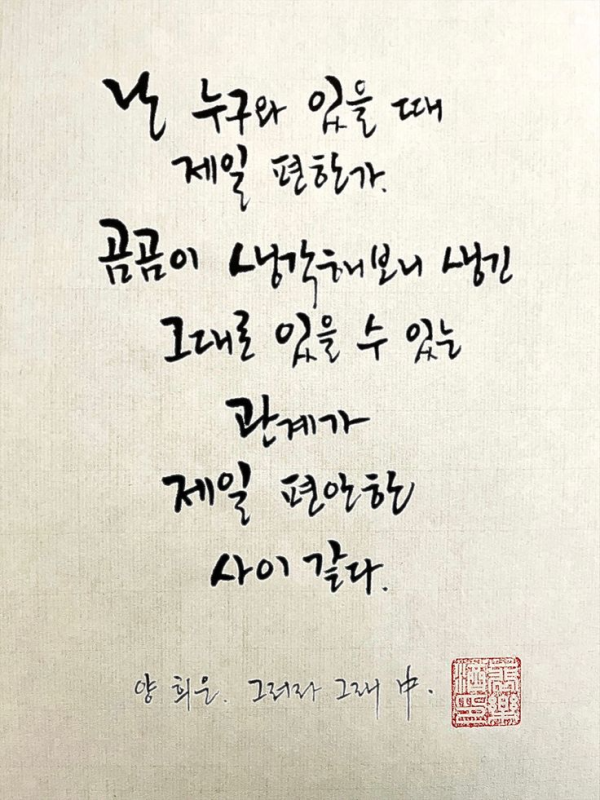 난 누구와 있을 때
제일 편한가.
곰곰이 생각해보니 생긴
그대로 있을 수 있는
관계가
제일 편안한
사이 같다.
양희은. 그러라 그래 中.